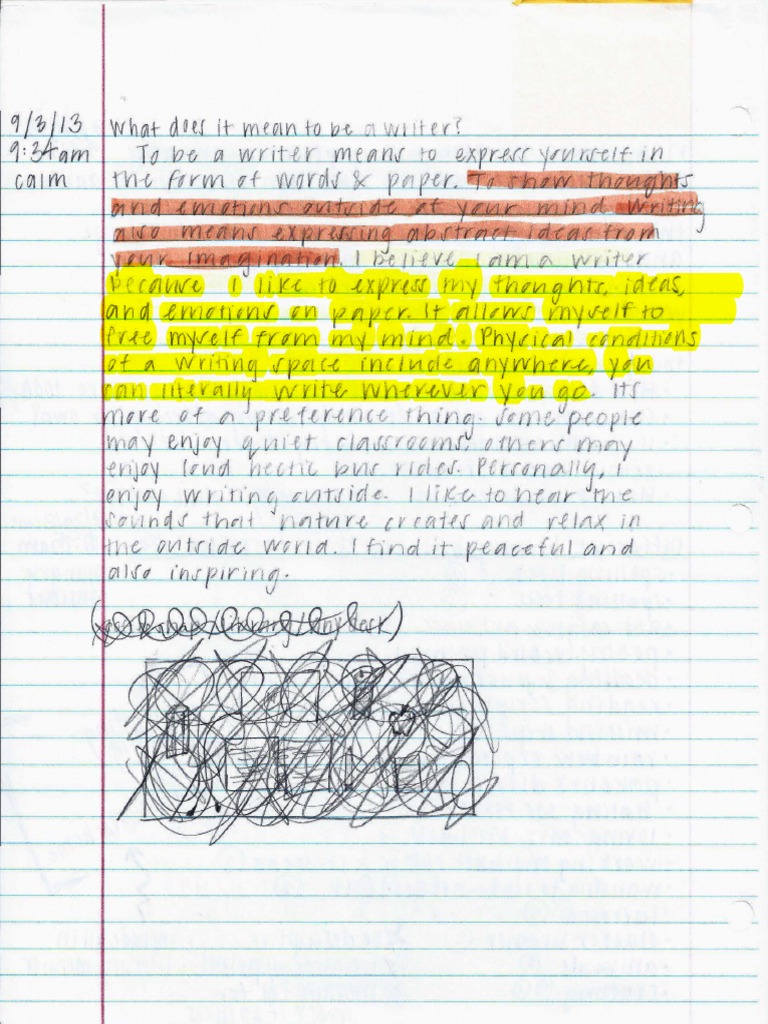 9/3/13 What does it mean to be a writer?
9:34am To be a writer means to express yourself in
calm the form of words & paper. To show thoughts
and emotions outside of your mind. Writing
also means expressing abstract ideas from
your imagination. I believe I am a writer
because I like to express my thoughts, ideas,
and emotions on paper. It allows myself to
free myself from my mind. Physical conditions
of a writing space include anywhere, you
can literally write wherever you go. Its
more of a preference thing. Some people
may enjoy quiet classrooms, others may
enjoy loud hectic bus rides. Personally, I
enjoy writing outside. I like to hear the
sounds that nature creates and relax in
the outside world. I find it peaceful and
also inspiring.